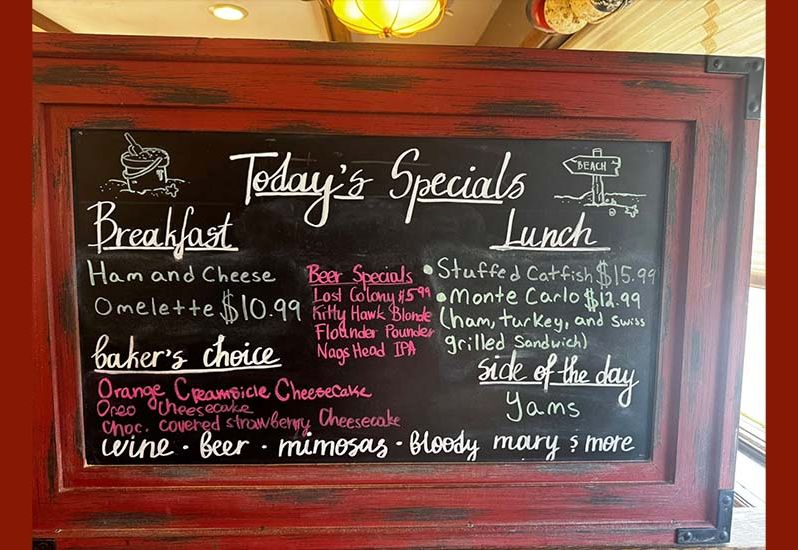 BEACH
Today's Specials
Breakfast
Ham and Cheese
Omelette $10.99
baker's choice
Orange Creamsicle Cheesecake
Oreo Cheesecake
Choc. covered strawberry Cheesecake
Beer Specials
Lost Colony $5.99
Kitty Hawk Blonde
Flounder Pounder
Nags Head IPA
Lunch
• Stuffed Catfish $15.99
• Monte Carlo $12.99
(ham, turkey, and swiss
grilled sandwich)
side of the day
yams
wine · beer · mimosas · bloody mary & more